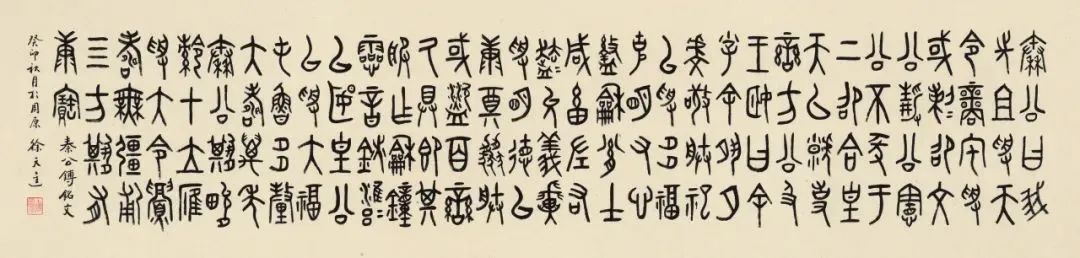 秦公曰我
先且受天
令商宅受
或剌卲文
公静公憲
公不彖于
上卲合皇
天以虩事
蠻方公及
王姬曰余
小子余夙夕
虔敬朕祀
以受多福
克明又心
盭龢胤士
咸畜左右
趩允義翼
受明德以
康奠協朕
或盜百蠻
具即其
服乍龢鐘
靈音鍺雝
以匽皇公
以受大福
屯魯多釐
大壽萬年
秦公其畯
齡才立膺
受大令眉
壽無疆匍
三方其又
康寶
秦公鎛銘文
癸卯秋月於周原